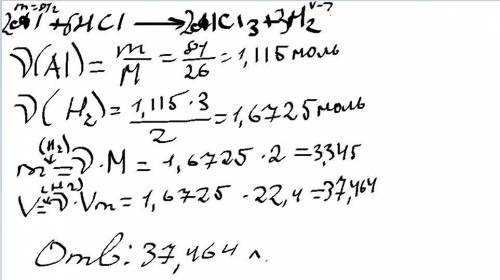 m=8г V-?
2Al+6HCl → 2AlCl3+3H2
ν(Al)= m/M = 81/26 =1,115 моль
ν(H2)= 1,115·3/2 =1,6725 моль
(H2)
m=ν·M=1,6725·2=3,345
(H2)
V=ν·Vm=1,6725·22,4=37,464
Отв: 37,464 л.